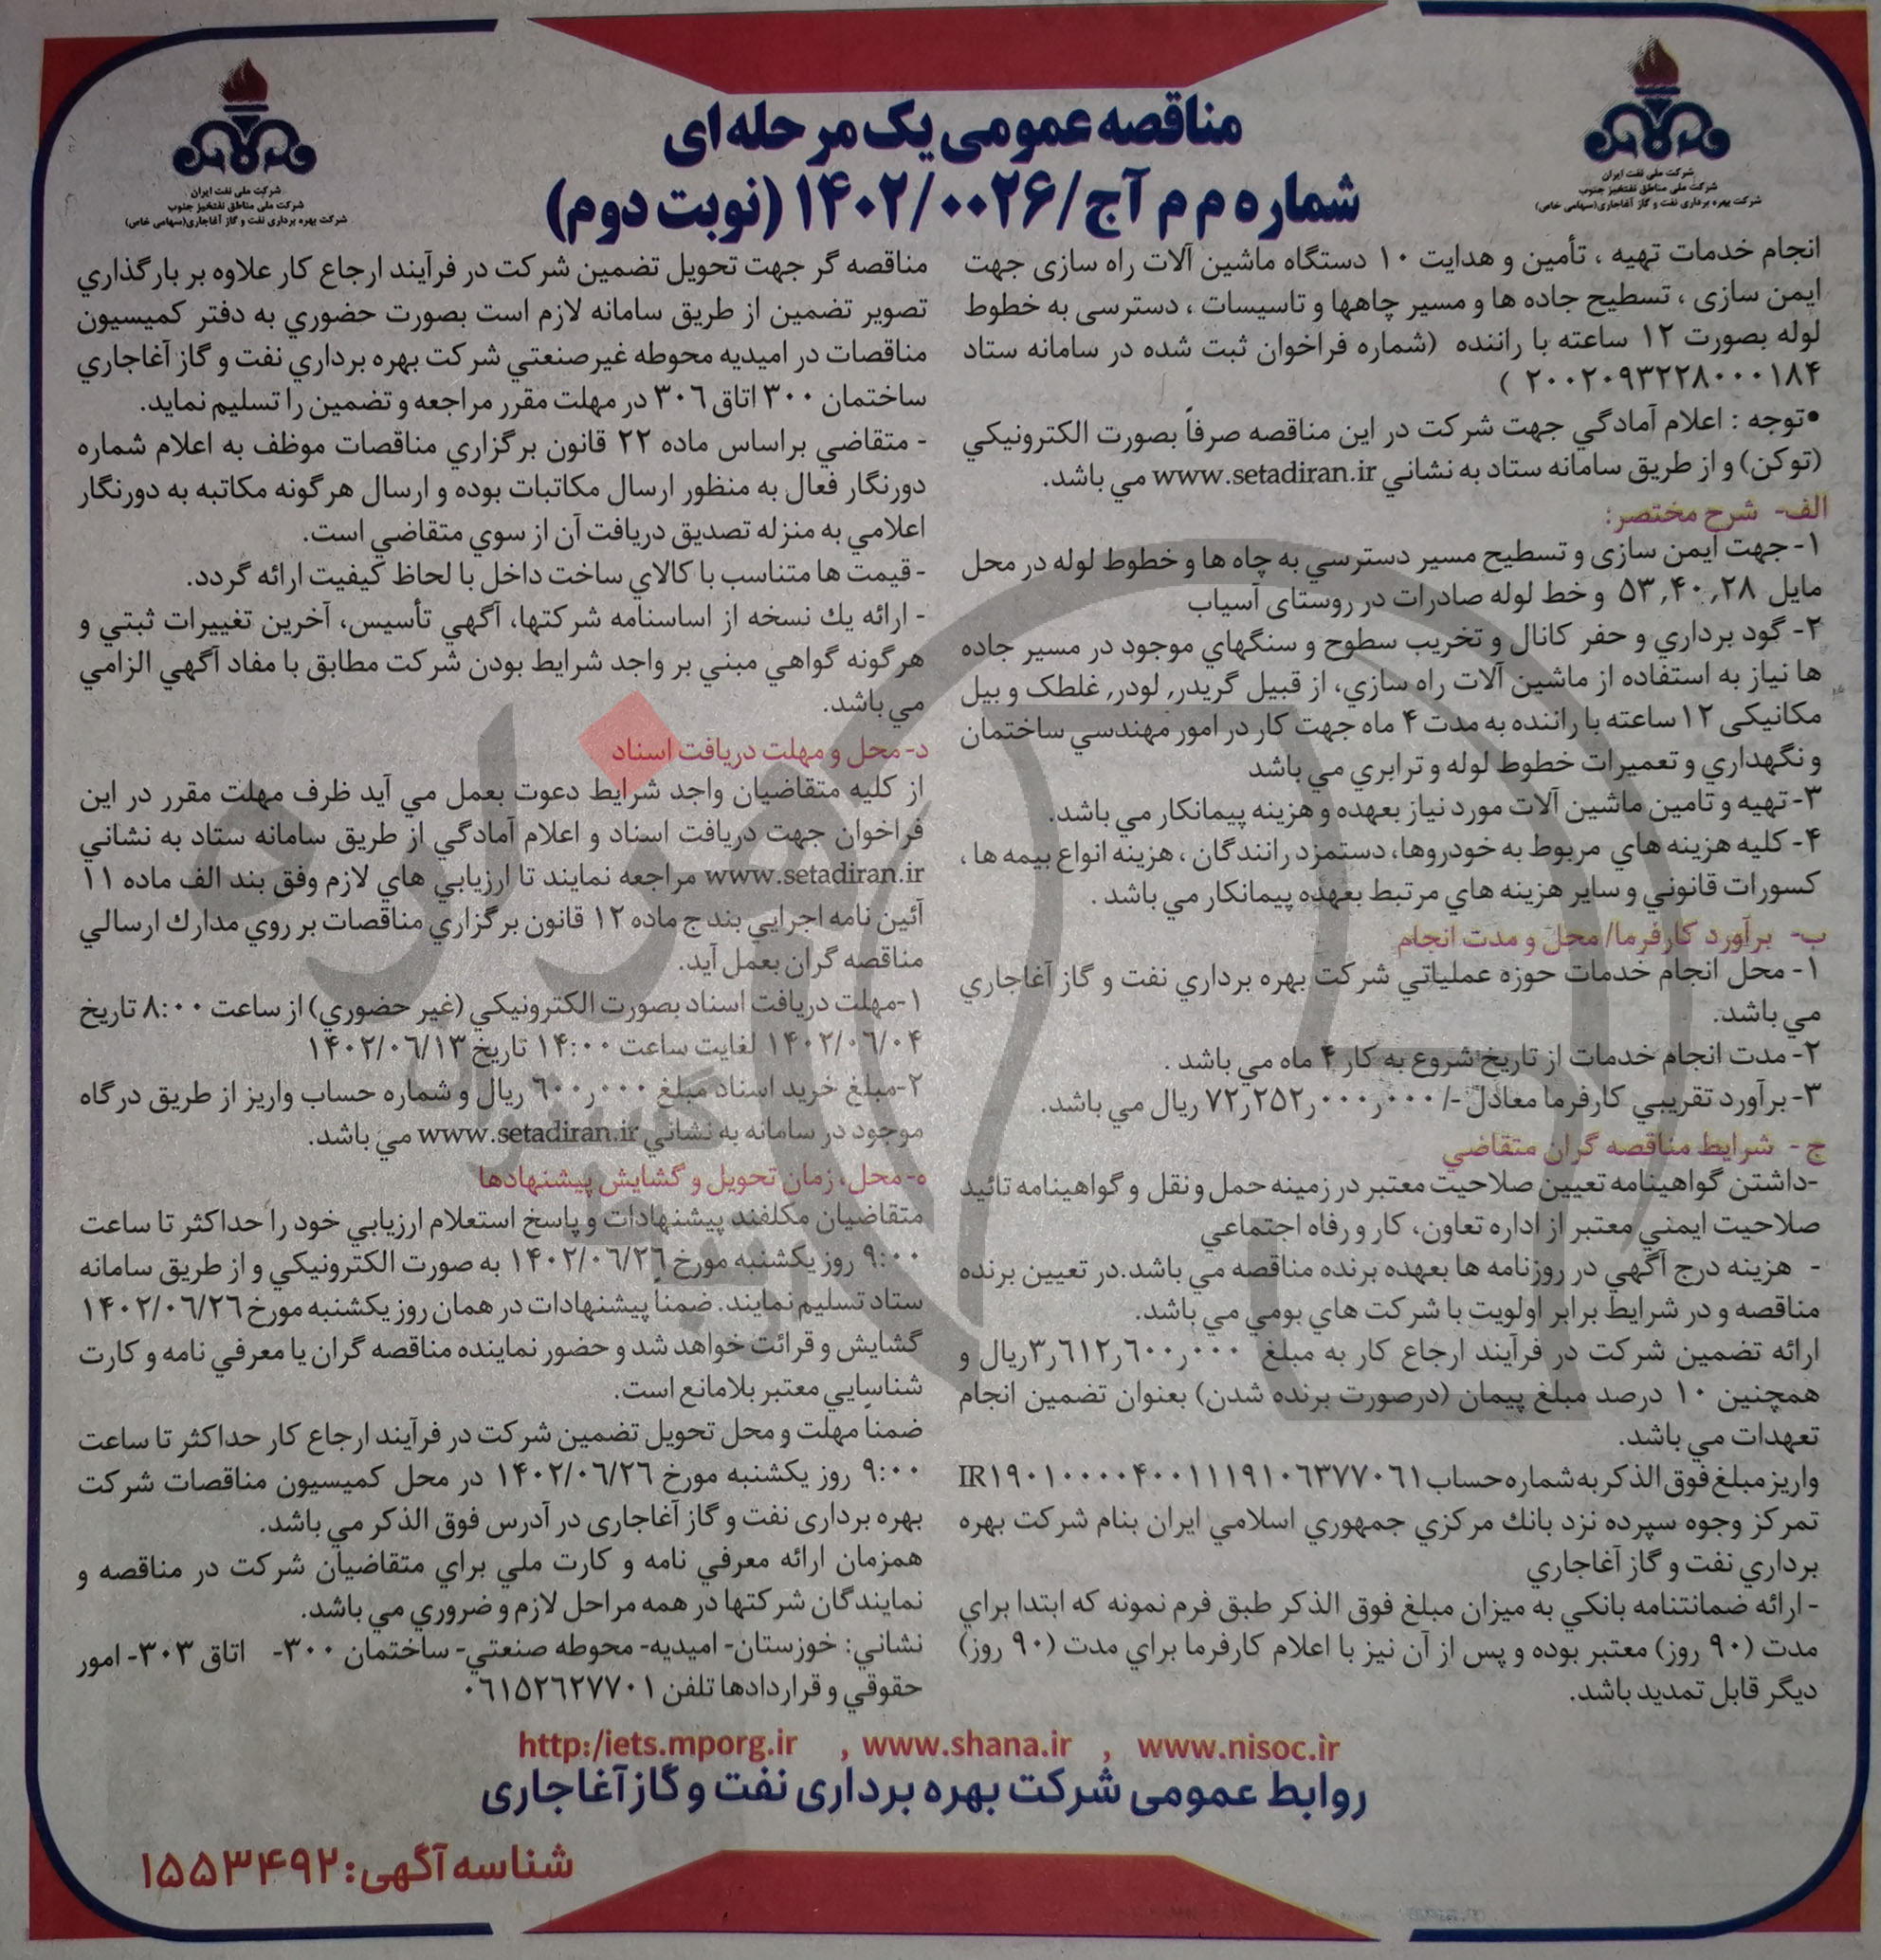 شرکت ملی نفت ایران
شرکت ملی مناطق نفتخیز جنوب
شرکت بهره برداری نفت و گاز آغاجاری (سهامی خاص)
شرکت ملی نفت ایران
شرکت ملی مناطق نفتخیز جنوب
شرکت بهره برداری نفت و گاز آغاجاری (سهامی خاص)
مناقصه عمومی یک مرحله ای
شماره م م آج/۱۴۰۲/۰۰۲۶ (نوبت دوم)
انجام خدمات تهیه ، تأمین و هدایت ۱۰ دستگاه ماشین آلات راه سازی جهت
ایمن سازی ، تسطیح جاده ها و مسیر چاهها و تاسیسات ، دسترسی به خطوط
لوله بصورت ۱۲ ساعته با راننده (شماره فراخوان ثبت شده در سامانه ستاد
۲۰۰۲۰۹۳۲۲۸۰۰۰۱۸۴ )
•توجه : اعلام آمادگي جهت شرکت در اين مناقصه صرفاً بصورت الکترونيکي
(توکن) و از طريق سامانه ستاد به نشاني www.setadiran.ir مي باشد.
الف- شرح مختصر:
۱- جهت ایمن سازی و تسطیح مسیر دسترسي به چاه ها و خطوط لوله در محل
مایل ۵۳٫۴۰٫۲۸ و خط لوله صادرات در روستای آسیاب
۲- گود برداري و حفر کانال و تخریب سطوح و سنگهاي موجود در مسير جاده
ها نياز به استفاده از ماشين آلات راه سازي، از قبيل گريدر, لودر, غلطک و بيل
مکانیکی ۱۲ ساعته با راننده به مدت ۴ ماه جهت کار در امور مهندسي ساختمان
و نگهداري و تعميرات خطوط لوله و ترابري مي باشد
۳- تهیه و تامین ماشین آلات مورد نیاز بعهده و هزینه پیمانکار مي باشد.
۴- کلیه هزینه هاي مربوط به خودروها، دستمزد رانندگان ، هزینه انواع بیمه ها ،
کسورات قانوني و سایر هزینه هاي مرتبط بعهده پيمانكار مي باشد .
ب- برآورد کارفرما/ محل و مدت انجام
۱- محل انجام خدمات حوزه عملیاتي شرکت بهره برداري نفت و گاز آغاجاري
مي باشد.
۲- مدت انجام خدمات از تاریخ شروع به کار ۴ ماه مي باشد .
۳- برآورد تقریبي کارفرما معادل -/ ۷۲٫۲۵۲٫۰۰۰٫۰۰۰ ریال مي باشد.
ج - شرایط مناقصه گران متقاضي
-داشتن گواهینامه تعیین صلاحیت معتبر در زمینه حمل و نقل و گواهینامه تائید
صلاحیت ایمني معتبر از اداره تعاون، کار و رفاه اجتماعي
- هزینه درج آگهي در روزنامه ها بعهده برنده مناقصه مي باشد.در تعیین برنده
مناقصه و در شرایط برابر اولویت با شرکت هاي بومي مي باشد.
ارائه تضمین شرکت در فرآیند ارجاع کار به مبلغ ۳٫٦۱۲٫٦۰۰٫۰۰۰ ریال و
همچنین ۱۰ درصد مبلغ پیمان (درصورت برنده شدن) بعنوان تضمین انجام
تعهدات مي باشد.
واریز مبلغ فوق الذکر به شماره حساب IR۱۹۰۱۰۰۰۰۴۰۰۱۱۱۹۱۰۶۳۷۷۰۶۱
تمرکز وجوه سپرده نزد بانک مرکزي جمهوري اسلامي ایران بنام شرکت بهره
برداري نفت و گاز آغاجاري
- ارائه ضمانتنامه بانکي به میزان مبلغ فوق الذکر طبق فرم نمونه که ابتدا براي
مدت (۹۰ روز) معتبر بوده و پس از آن نيز با اعلام کارفرما براي مدت (۹۰ روز)
دیگر قابل تمدید باشد.
مناقصه گر جهت تحویل تضمین شرکت در فرآیند ارجاع کار علاوه بر بارگذاري
تصویر تضمین از طریق سامانه لازم است بصورت حضوري به دفتر کمیسیون
مناقصات در امیدیه محوطه غیرصنعتي شرکت بهره برداري نفت و گاز آغاجاري
ساختمان ۳۰۰ اتاق ۳۰٦ در مهلت مقرر مراجعه و تضمین را تسلیم نماید.
- متقاضي براساس ماده ۲۲ قانون برگزاري مناقصات موظف به اعلام شماره
دورنگار فعال به منظور ارسال مکاتبات بوده و ارسال هرگونه مکاتبه به دورنگار
اعلامي به منزله تصدیق دریافت آن از سوي متقاضي است.
- قیمت ها متناسب با کالاي ساخت داخل با لحاظ کیفیت ارائه گردد.
- ارائه یك نسخه از اساسنامه شرکتها، آگهي تأسیس، آخرین تغییرات ثبتي و
هرگونه گواهي مبني بر واجد شرایط بودن شرکت مطابق با مفاد آگهي الزامي
مي باشد.
د- محل و مهلت دریافت اسناد
از کلیه متقاضیان واجد شرایط دعوت بعمل مي آید ظرف مهلت مقرر در این
فراخوان جهت دریافت اسناد و اعلام آمادگي از طریق سامانه ستاد به نشاني
www.setadiran.ir مراجعه نمایند تا ارزیابي هاي لازم وفق بند الف ماده ۱۱
آئین نامه اجرایي بند ج ماده ۱۲ قانون برگزاري مناقصات بر روي مدارك ارسالي
مناقصه گران بعمل آید.
۱-مهلت دریافت اسناد بصورت الکترونیکي (غیر حضوري) از ساعت ۸:۰۰ تاریخ
۱۴۰۲/۰٦/۰۴ لغایت ساعت ۱۴:۰۰ تاریخ ۱۴۰۲/۰٦/۱۳
۲-مبلغ خرید اسناد مبلغ ٦۰۰٫۰۰۰ ریال و شماره حساب واریز از طریق درگاه
موجود در سامانه به نشاني www.setadiran.ir مي باشد.
ه- محل، زمان تحویل و گشایش پیشنهادها
متقاضیان مکلفند پیشنهادات و پاسخ استعلام ارزیابي خود را حداکثر تا ساعت
۹:۰۰ روز یکشنبه مورخ ۱۴۰۲/۰٦/۲٦ به صورت الکترونیکي و از طریق سامانه
ستاد تسلیم نمایند. ضمناً پیشنهادات در همان روز یکشنبه مورخ ۱۴۰۲/۰٦/۲٦
گشایش و قرائت خواهد شد و حضور نماینده مناقصه گران یا معرفي نامه و کارت
شناسایي معتبر بلامانع است.
ضمناً مهلت و محل تحویل تضمین شرکت در فرآیند ارجاع کار حداکثر تا ساعت
۹:۰۰ روز یکشنبه مورخ ۱۴۰۲/۰٦/۲٦ در محل کمیسیون مناقصات شرکت
بهره برداری نفت و گاز آغاجاری در آدرس فوق الذکر مي باشد.
همزمان ارائه معرفي نامه و کارت ملي براي متقاضیان شرکت در مناقصه و
نمایندگان شرکتها در همه مراحل لازم و ضروري مي باشد.
نشاني: خوزستان- امیدیه- محوطه صنعتي- ساختمان ۳۰۰- اتاق ۳۰۳- امور
حقوقي و قراردادها تلفن ۰٦۱۵۲٦۲۷۷۰۱
http:/iets.mporg.ir , www.shana.ir , www.nisoc.ir
روابط عمومی شرکت بهره برداری نفت و گاز آغاجاری
شناسه آگهی: ۱۵۵۳۴۹۲